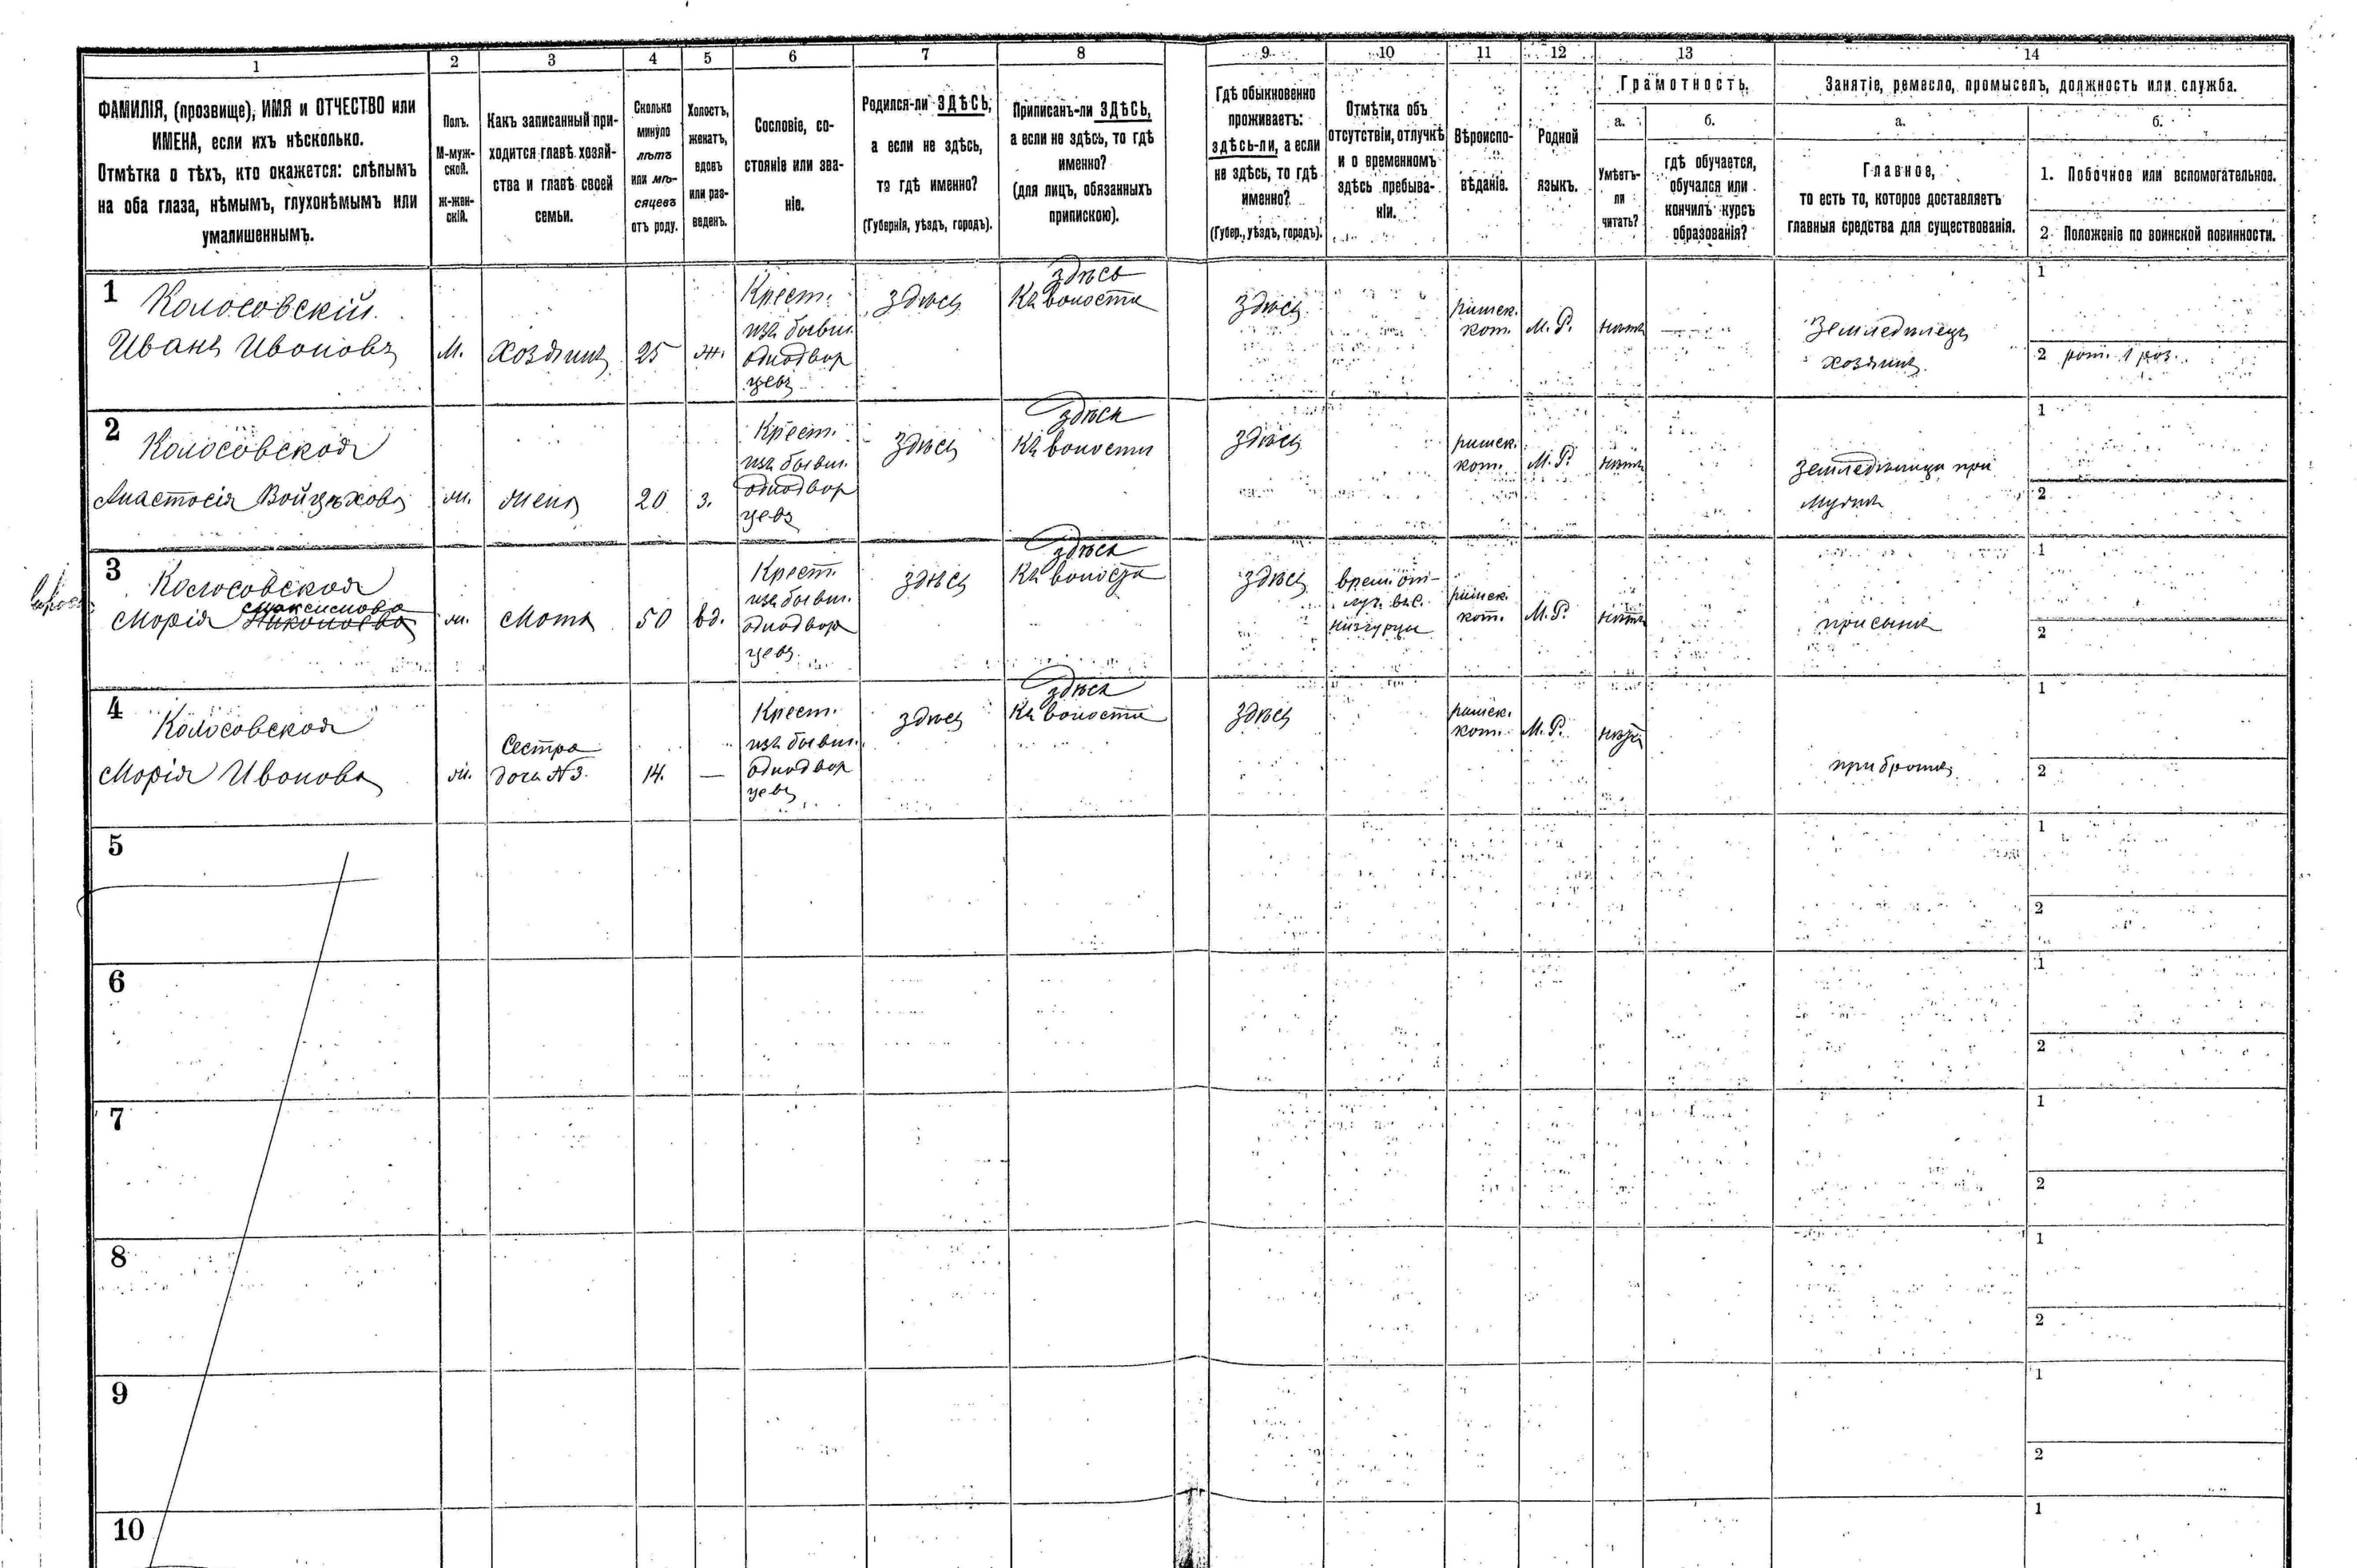 1 2 3 4 5 6 7 8 9 10 11 12 13 14
ФАМИЛІЯ, (прозвище), ИМЯ и ОТЧЕСТВО или
ИМЕНА, если ихъ нѣсколько.
Отмѣтка о тѣхъ, кто окажется: слѣпымъ
на оба глаза, нѣмымъ, глухонѣмымъ или
умалишеннымъ.
Полъ.
М-муж-
ской.
Ж-жен-
скій.
Какъ записанный при-
ходится главѣ хозяй-
ства и главѣ своей
семьи.
Сколько
минуло
лѣтъ
или мѣ-
сяцевъ
отъ роду.
Холостъ,
женатъ,
вдовъ
или раз-
веденъ.
Сословіе, со-
стояніе или зва-
ніе.
Родился-ли ЗДѢСЬ,
а если не здѣсь,
то гдѣ именно?
(Губернія, уѣздъ, городъ).
Приписанъ-ли ЗДѢСЬ,
а если не здѣсь, то гдѣ
именно?
(для лицъ, обязанныхъ
припискою).
Гдѣ обыкновенно
проживаетъ:
здѣсь-ли, а если
не здѣсь, то гдѣ
именно?
(Губер., уѣздъ, городъ).
Отмѣтка объ
отсутствіи, отлучкѣ
и о временномъ
здѣсь пребыва-
ніи.
Вѣроиспо-
вѣданіе.
Родной
языкъ.
Грамотность.
а.
Умѣетъ-
ли
читать?
б.
гдѣ обучается,
обучался или
кончилъ курсъ
образованія?
Занятіе, ремесло, промыселъ, должность или служба.
а.
Главное,
то есть то, которое доставляетъ
главныя средства для существованія.
б.
1. Побочное или вспомогательное.
2. Положеніе по воинской повинности.
1
Колосовскій
Иванъ Ивановъ
М.
хозяинъ
25
ж.
Крест.
изъ бывш.
однодвор
цевъ
здѣсь
здѣсь
къ волости
здѣсь
римск.
кат.
М. Р.
нѣтъ
—
Земледѣлецъ
хозяинъ
1
2 рат. 1 раз.
2
Колосовская
Анастасія Войцѣхова
ж.
жена
20
з.
Крест.
изъ бывш.
однодвор
цевъ
здѣсь
здѣсь
къ волости
здѣсь
римск.
кат.
М. Р.
нѣтъ
Земледѣлица при
мужѣ
1
2
3
Колосовская
Максимова
Марія
ж.
мать
50
вд.
Крест.
изъ бывш.
однодвор
цевъ
здѣсь
здѣсь
къ волости
здѣсь
врем. от-
римск.
кат.
М. Р.
нѣтъ
при сынѣ
1
2
4
Колосовская
Марія Иванова
ж.
Сестра
дочь №3.
14.
—
Крест.
изъ бывш.
однодвор
цевъ
здѣсь
здѣсь
къ волости
здѣсь
римск.
кат.
М. Р.
нѣтъ
при братѣ
1
2
5
1
2
6
1
2
7
1
2
8
1
2
9
1
2
10
1